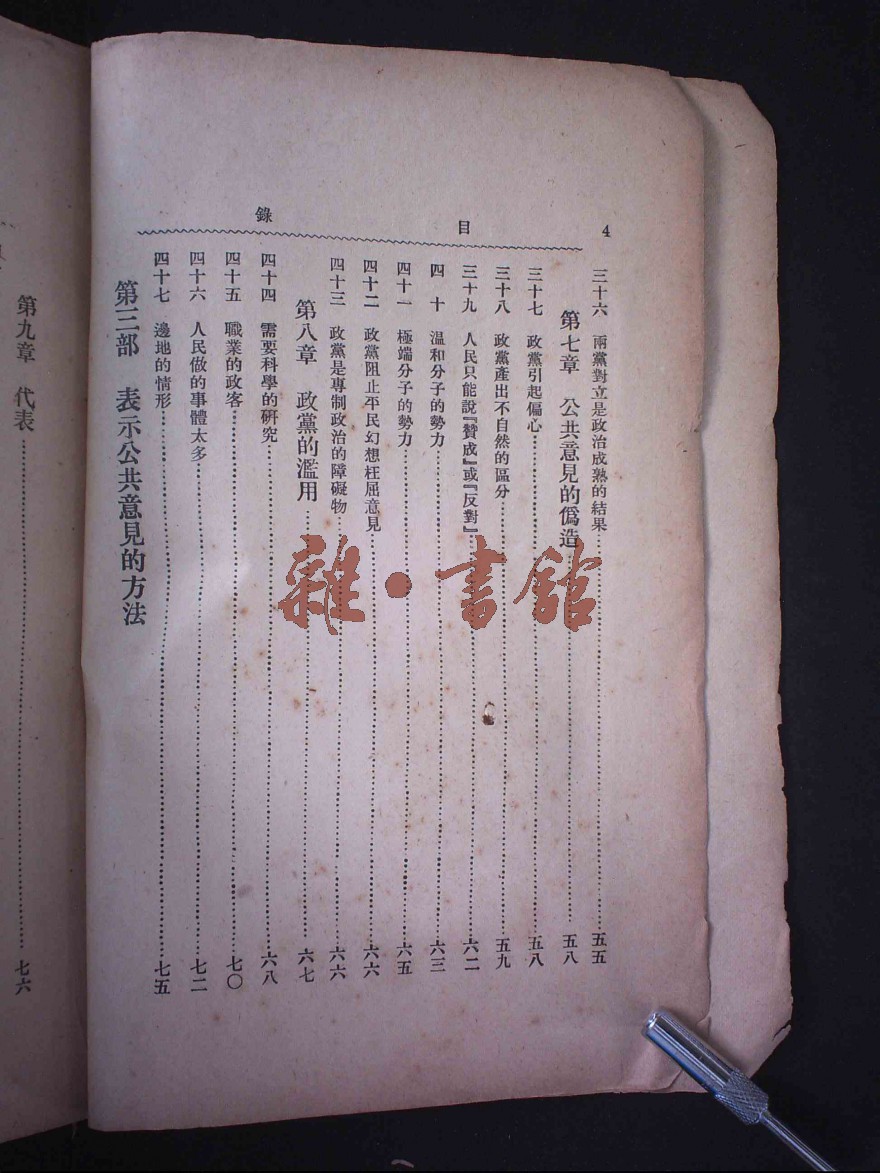 4
目錄
三十六 兩黨對立是政治成熟的結果……五五
第七章 公共意見的僞造……五八
三十七 政黨引起偏心……五八
三十八 政黨產出不自然的區分……五九
三十九 人民只能說『贊成』或『反對』……六二
四十 温和分子的勢力……六三
四十一 極端分子的勢力……六五
四十二 政黨阻止平民幻想枉屈意見……六六
四十三 政黨是專制政治的障礙物……六六
第八章 政黨的濫用……六七
四十四 需要科學的研究……六八
四十五 職業的政客……七〇
四十六 人民做的事體太多……七二
四十七 邊地的情形……七五
第三部 表示公共意見的方法
第九章 代表……七六
雜·書館